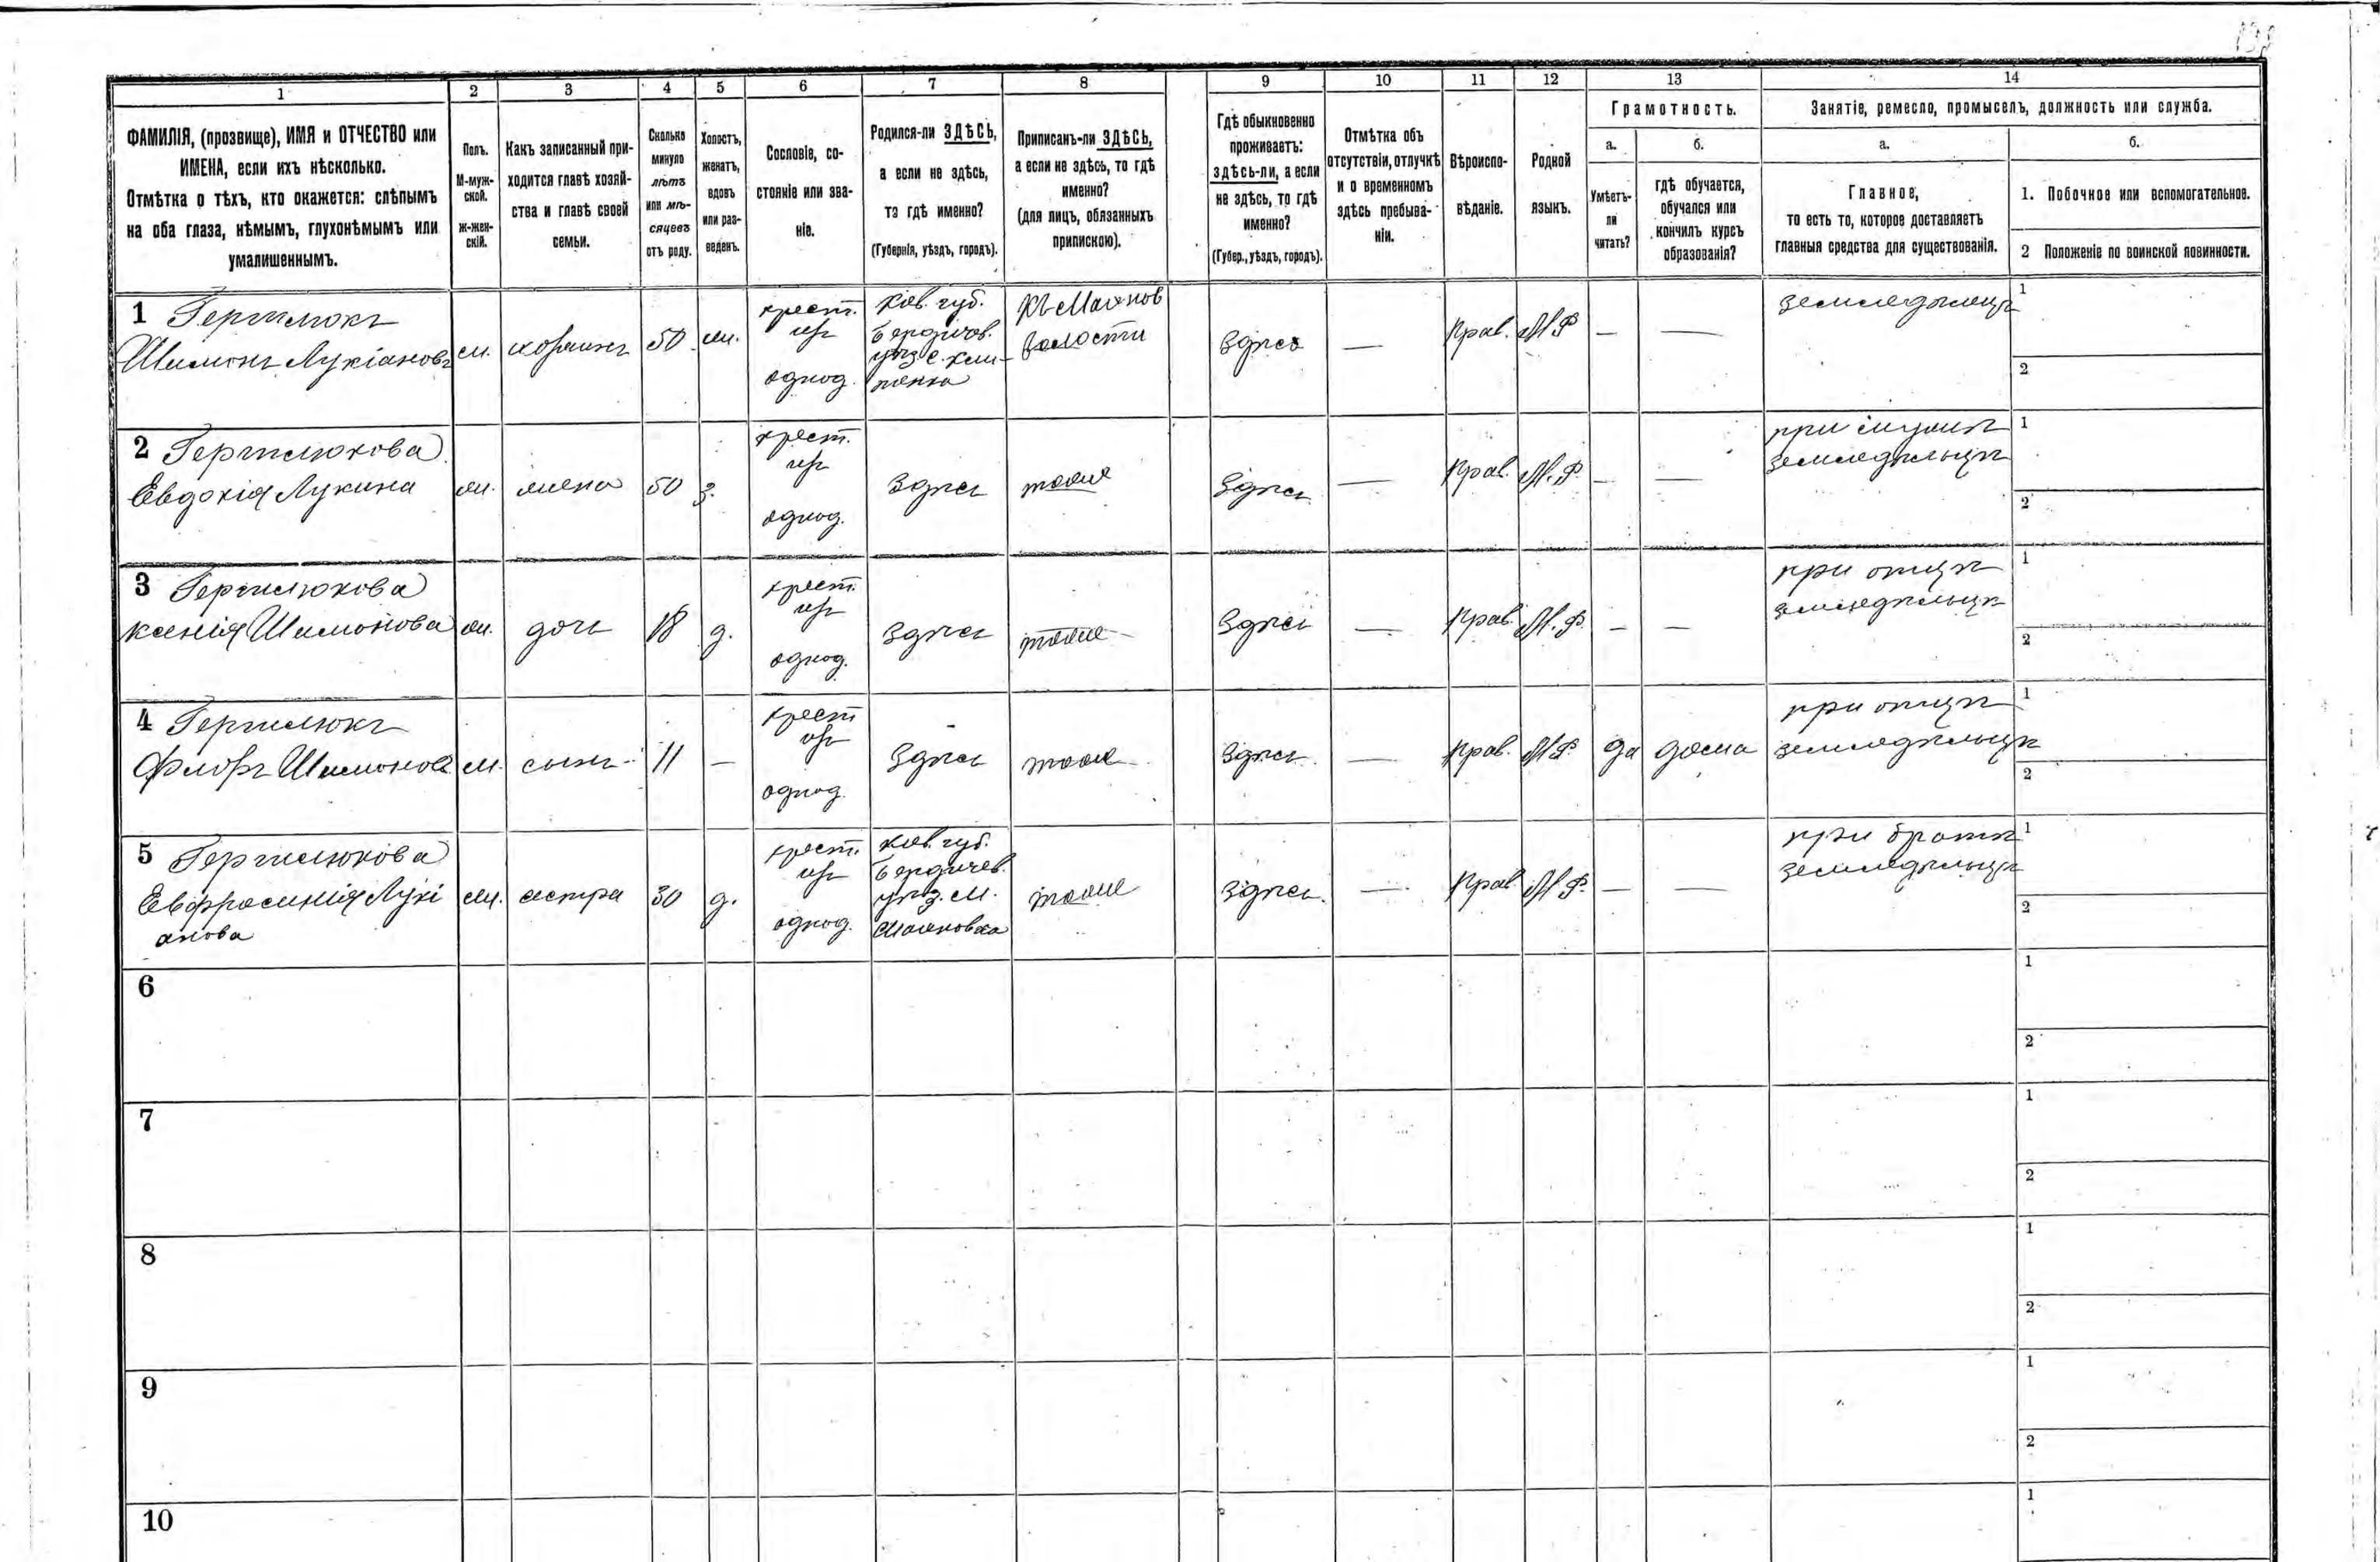 1
2
3
4
5
6
7
8
9
10
11
12
13
14
ФАМИЛІЯ, (прозвище), ИМЯ и ОТЧЕСТВО или
ИМЕНА, если ихъ нѣсколько.
Отмѣтка о тѣхъ, кто окажется: слѣпымъ
на оба глаза, нѣмымъ, глухонѣмымъ или
умалишеннымъ.
Полъ.
М-муж-
ской.
ж-жен-
скій.
Какъ записанный при-
ходится главѣ хозяй-
ства и главѣ своей
семьи.
Сколько
минуло
лѣтъ
или мѣ-
сяцевъ
отъ роду.
Холостъ,
женатъ,
вдовъ
или раз-
веденъ.
Сословіе, со-
стояніе или зва-
ніе.
Родился-ли ЗДѢСЬ,
а если не здѣсь,
то гдѣ именно?
(Губернія, уѣздъ, городъ).
Приписанъ-ли ЗДѢСЬ,
а если не здѣсь, то гдѣ
именно?
(для лицъ, обязанныхъ
припискою).
Гдѣ обыкновенно
проживаетъ:
здѣсь-ли, а если
не здѣсь, то гдѣ
именно?
(Губер., уѣздъ, городъ).
Отмѣтка объ
отсутствіи, отлучкѣ
и о временномъ
здѣсь пребыва-
ніи.
Вѣроиспо-
вѣданіе.
Родной
языкъ.
Грамотность.
а.
Умѣетъ-
ли
читать?
б.
гдѣ обучается,
обучался или
кончилъ курсъ
образованія?
Занятіе, ремесло, промыселъ, должность или служба.
а.
Главное,
то есть то, которое доставляетъ
главныя средства для существованія.
б.
1. Побочное или вспомогательное.
2 Положеніе по воинской повинности.
1
Шимонъ Лукіановъ
м.
хозяинъ
50
ж.
крест.
изъ
однод.
Кіев. губ.
Бердичев.
уѣз. с.
волости
Здѣсь
—
Прав.
—
—
земледѣлецъ
1
2
2
Евдокія Лукина
ж.
жена
50
з.
крест.
изъ
однод.
Здѣсь
тоже
Здѣсь
—
Прав.
—
—
при мужѣ
земледѣльцѣ
1
2
3
Ксенія Шимонова
ж.
дочь
18
д.
крест.
изъ
однод.
Здѣсь
тоже
Здѣсь
—
Прав.
—
—
при отцѣ
земледѣльцѣ
1
2
4
Флоръ Шимоновъ
м.
сынъ
11
—
крест
изъ
однод.
Здѣсь
тоже
Здѣсь
—
Прав.
да
дома
при отцѣ
земледѣльцѣ
1
2
5
Евфросинія Лукі
анова
ж.
сестра
30
д.
крест.
изъ
однод.
Кіев. губ.
Бердичев.
уѣз. м.
тоже
Здѣсь.
—
Прав.
—
—
при братѣ
земледѣльцѣ
1
2
6
1
2
7
1
2
8
1
2
9
1
2
10
1